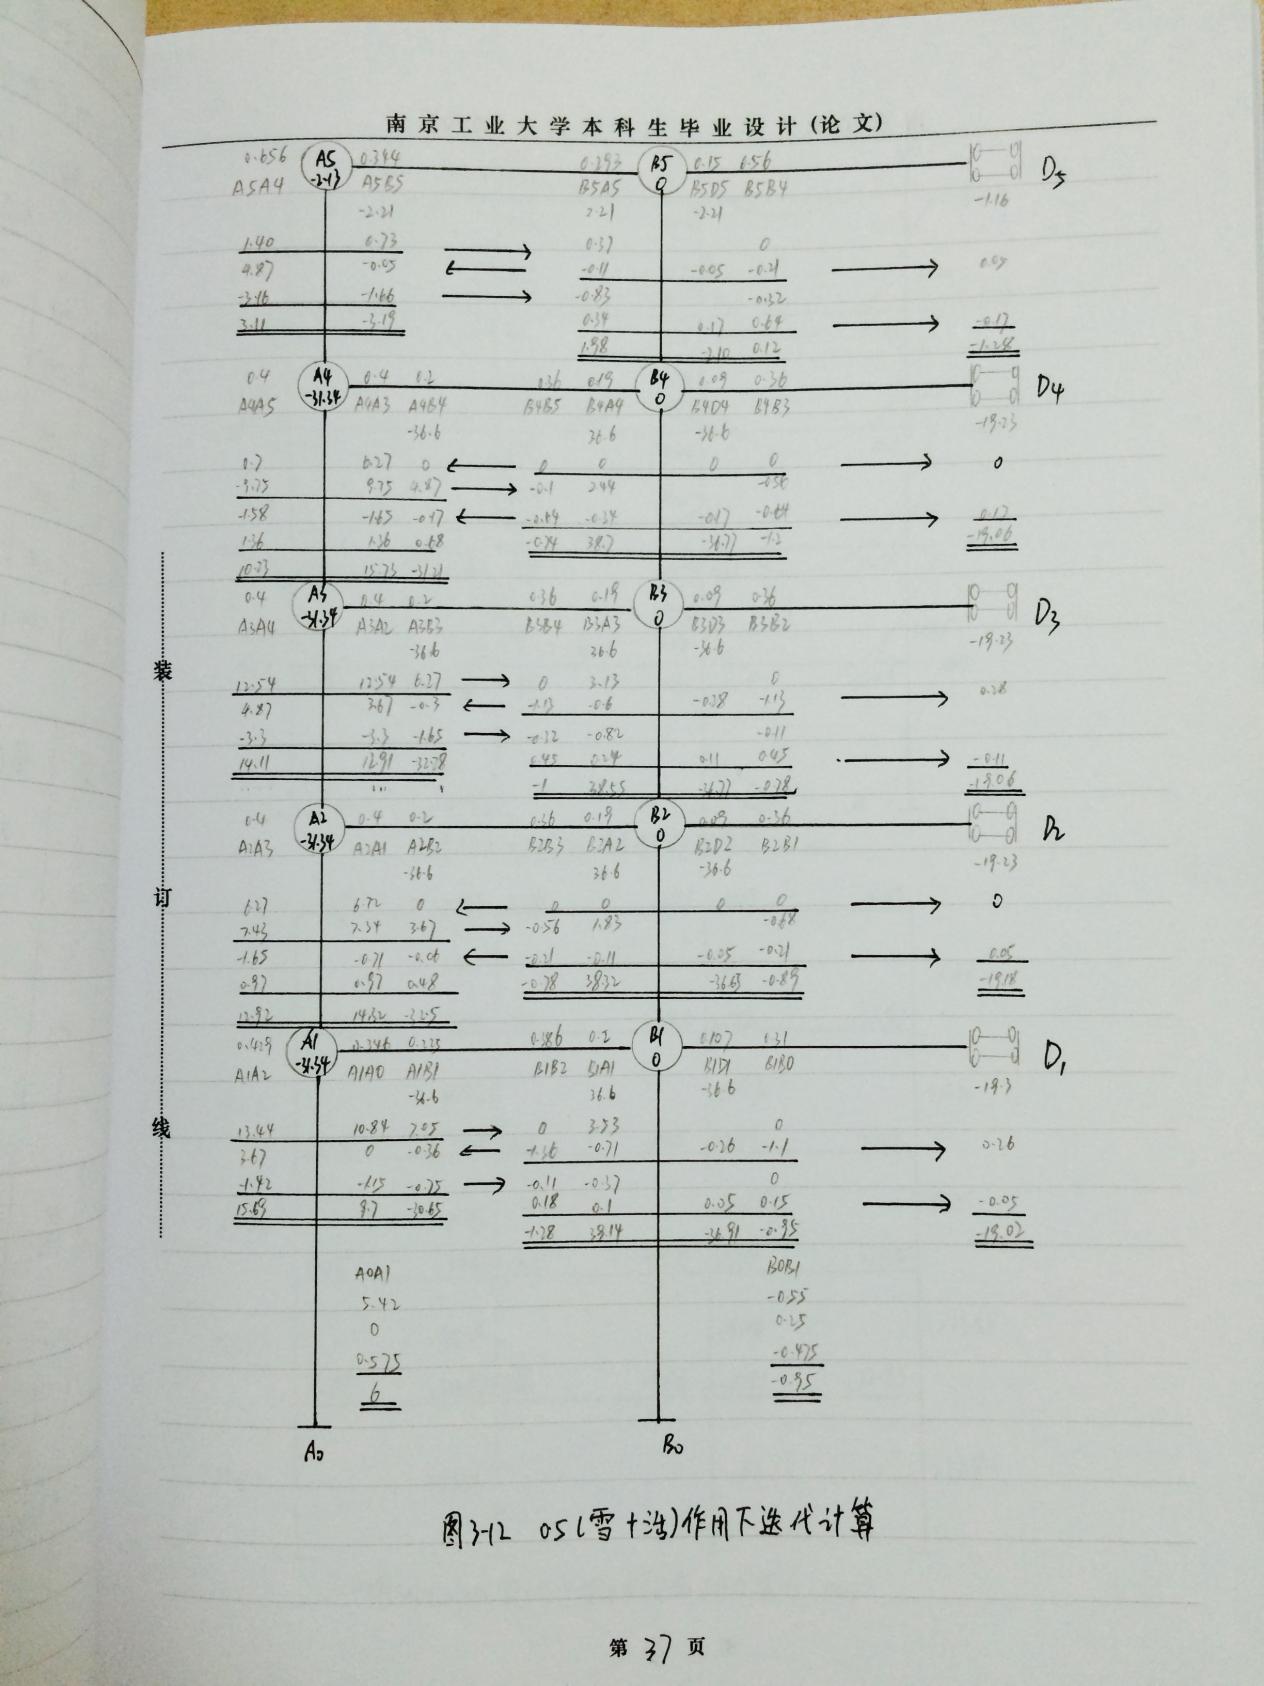 南京工业大学本科生毕业设计(论文)
0.656 A5 0.344 0.293 B5 0.15 0.56
A5A4 -2.13 A5B5 B5A5 0 B5D5 B5B4 D5
-2.21 2.21 -2.21 -1.16
1.40 0.73 0.37 0
4.87 -0.05 -0.11 -0.05 -0.21 0.05
-3.16 -1.66 -0.83 -0.32
3.11 -3.19 0.34 0.17 0.64 -0.17
1.98 -2.10 0.12 -1.28
0.4 A4 0.4 0.2 0.36 0.19 B4 0.09 0.36 D4
A4A5 -31.34 A4A3 A4B4 B4B5 B4A4 0 B4D4 B4B3
-36.6 36.6 -36.6 -19.23
0.7 6.27 0 0 0 0 0 0
-9.75 9.75 4.87 -0.1 2.44 -0.56
-1.58 -1.65 -0.17 -0.64 -0.34 -0.17 -0.64 0.17
1.36 1.36 0.68 -0.74 38.7 -36.77 -1.2 -19.06
10.73 15.73 -31.21
0.4 A3 0.4 0.2 0.36 0.19 B3 0.09 0.36
A3A4 -31.34 A3A2 A3B3 B3B4 B3A3 0 B3D3 B3B2 D3
-36.6 36.6 -36.6 -19.23
装
12.54 12.54 6.27 0 3.13 0
4.87 3.67 -0.3 -1.13 -0.6 -0.28 -1.13 0.28
-3.3 -3.3 -1.65 -0.32 -0.82 -0.11
14.11 12.91 -32.28 0.45 0.24 0.11 0.45 -0.11
-1 38.55 -36.77 -0.78 -19.06
0.4 A2 0.4 0.2 0.36 0.19 B2 0.09 0.36 D2
A2A3 -31.34 A2A1 A2B2 B2B3 B2A2 0 B2D2 B2B1
-36.6 36.6 -36.6 -19.23
订
6.27 6.72 0 0 0 0 0 0
7.43 7.34 3.67 -0.56 1.83 -0.68
-1.65 -0.71 -0.06 -0.21 -0.11 -0.05 -0.21 0.05
0.97 0.97 0.48 -0.78 38.32 -36.65 -0.89 -19.18
12.92 14.32 -32.5
0.429 A1 0.346 0.225 0.386 0.2 B1 0.107 0.31
A1A2 -31.34 A1A0 A1B1 B1B2 B1A1 0 B1D1 B1B0 D1
-36.6 36.6 -36.6 -19.3
线
13.44 10.84 7.05 0 3.53 0
3.67 0 -0.36 -1.36 -0.71 -0.26 -1.1 0.26
-1.42 -1.15 -0.75 -0.11 -0.37 0
15.69 9.7 -30.65 0.18 0.1 0.05 0.15 -0.05
-1.28 39.14 -36.91 -0.95 -19.02
A0A1 B0B1
5.42 -0.55
0 0.25
0.575 -0.475
6 -0.95
A0 B0
图3-12 0.5(雪+活)作用下迭代计算
第 37 页